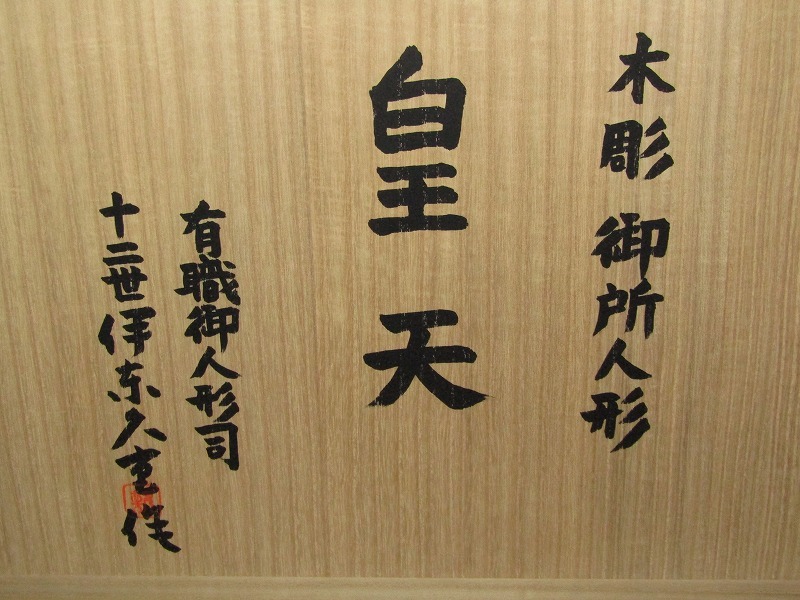 木彫 御所人形
皇天
有職御人形司
十二世伊東久重作